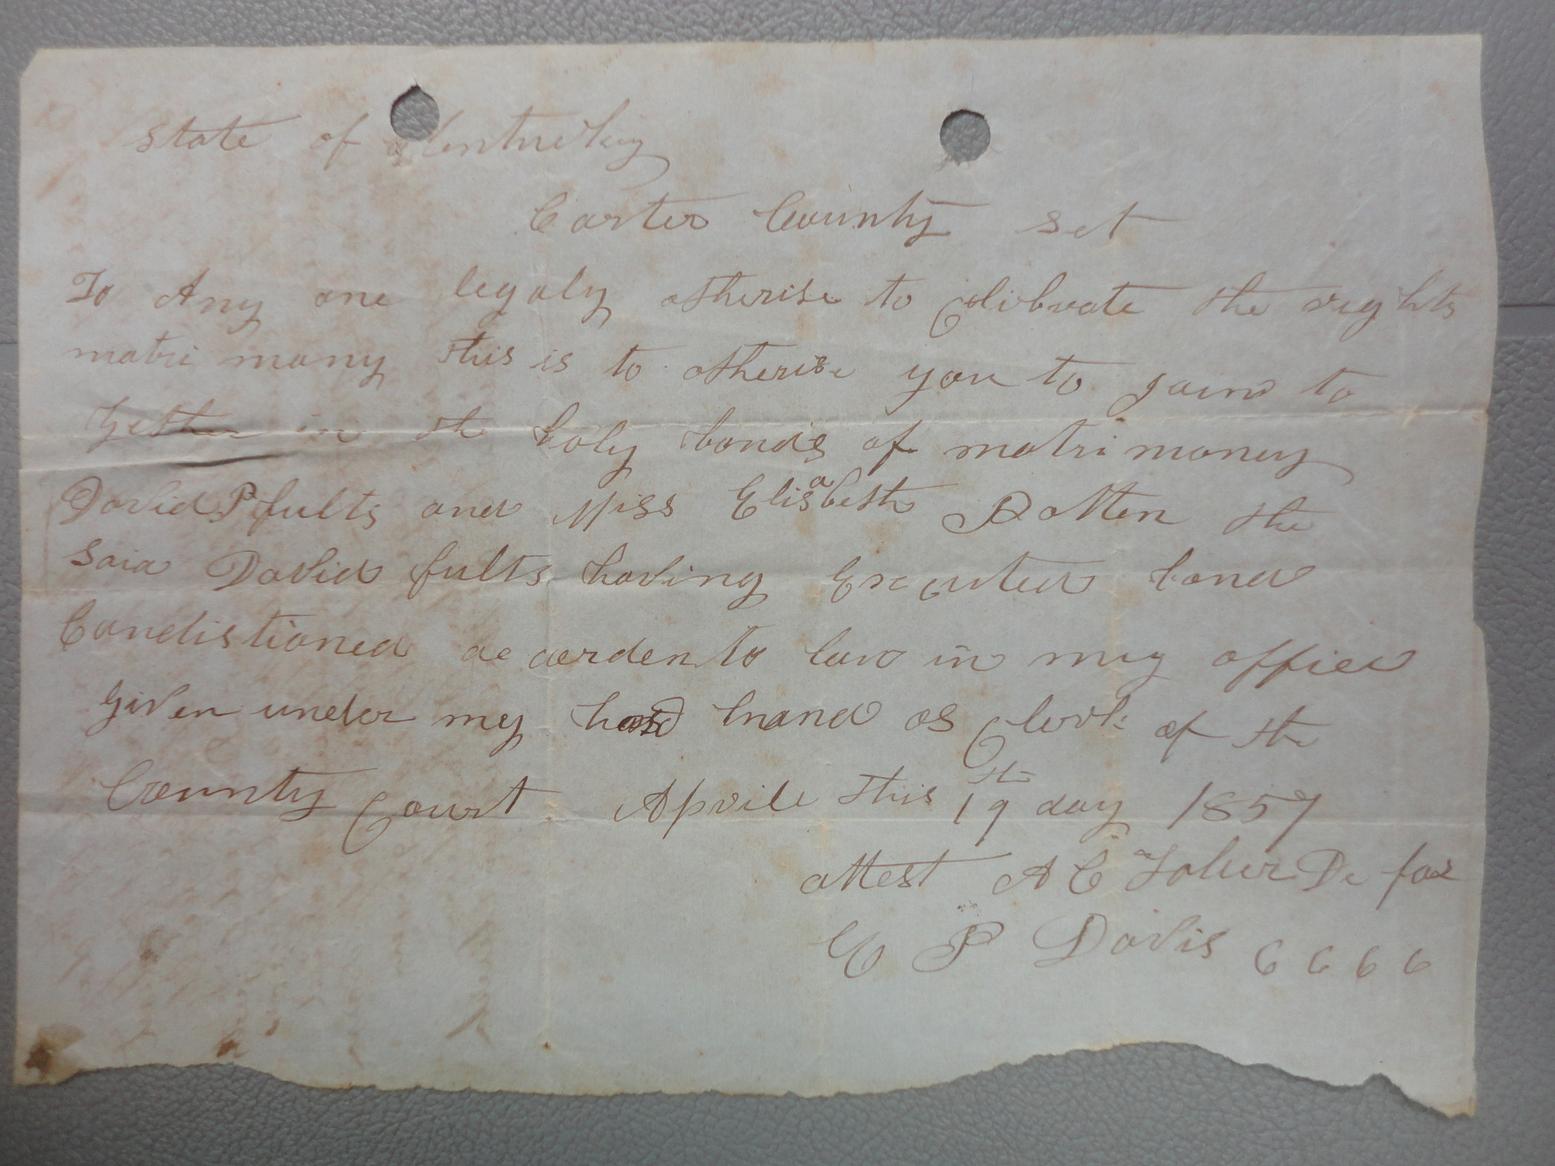 State of Kentucky
Carter County Sct
To Any one legaly otherise to Celibrate the rights
matri mony this is to otherise you to Joind to
gether in the holy bonds of matri money
David P fults and Miss Elisabeth Patten the
Said David fults having Executed bond
Condistioned accorden to law in my office
Given under my hand as Clerk of the
County Court Aprile this 19th day 1857
attest A C De for
C P Davis C C C C